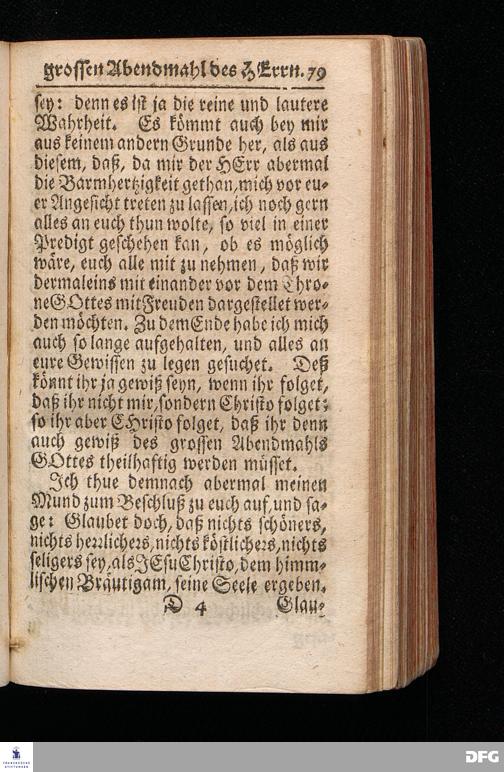 grossen Abendmahl des HErrn. 79
sey: denn es ist ja die reine und lautere
Wahrheit. Es kömmt auch bey mir
aus keinem andern Grunde her, als aus
diesem, daß, da mir der HErr abermal
die Barmhertzigkeit gethan, mich vor eu-
er Angesicht treten zu lassen, ich noch gern
alles an euch thun wolte, so viel in einer
Predigt geschehen kan, ob es möglich
wäre, euch alle mit zu nehmen, daß wir
dermaleins mit einander vor dem Thro-
ne GOttes mit Freuden dargestellet wer-
den möchten. Zu dem Ende habe ich mich
auch so lange aufgehalten, und alles an
eure Gewissen zu legen gesuchet. Deß
könnt ihr ja gewiß seyn, wenn ihr folget,
daß ihr nicht mir, sondern Christo folget:
so ihr aber CHristo folget, daß ihr denn
auch gewiß des grossen Abendmahls
GOttes theilhaftig werden müsset.
Ich thue demnach abermal meinen
Mund zum Beschluß zu euch auf, und sa-
ge: Glaubet doch, daß nichts schöners,
nichts herrlichers, nichts köstlichers, nichts
seligers sey, als JEsu Christo, dem himm-
lischen Bräutigam, seine Seele ergeben.
D 4 Glau-
FRANCKESCHE
STIFTUNGEN
DFG